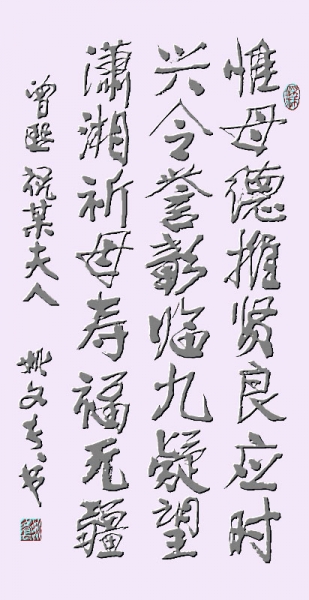 惟母德推贤良应时
兴令誉彰临九疑望
潇湘祈母寿福无疆
曾熙祝某夫人
姚文夫书